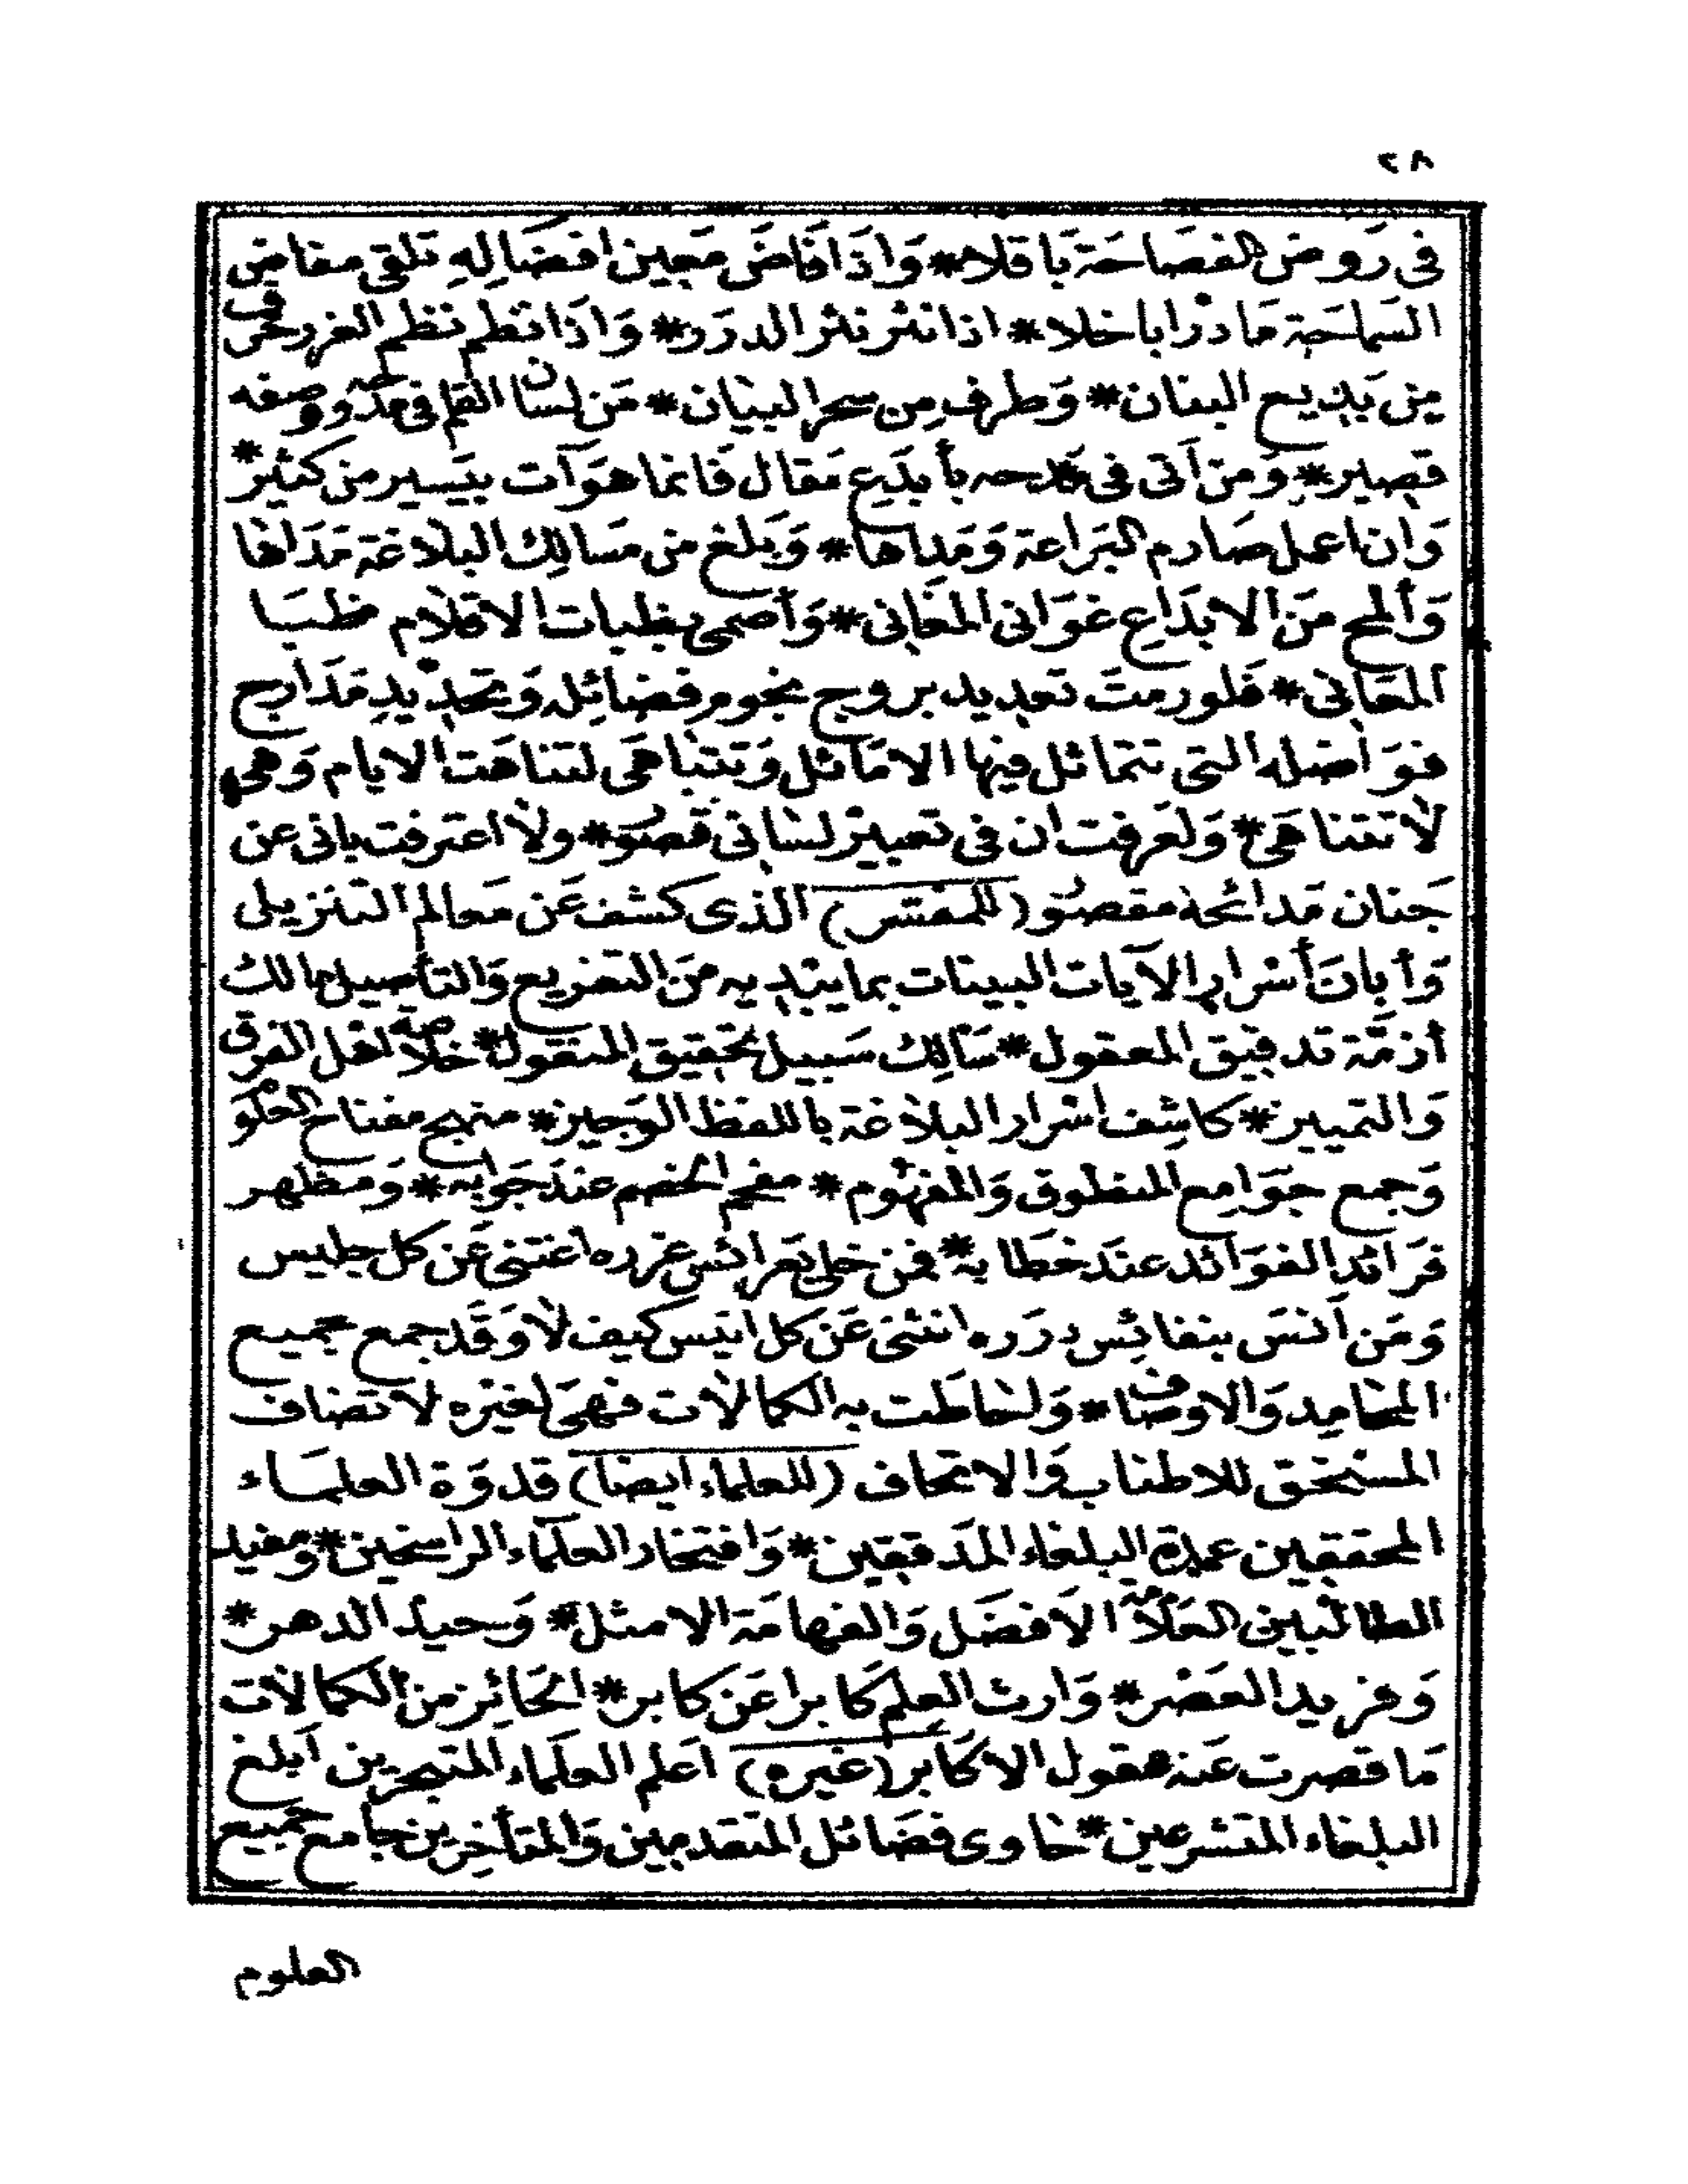 ٢٨
فى رَوض الفصَاحَة بَاقلا * وَاذَا فَاضَ مَعِين افضَالِهِ تلقى مفاض
السَماحَة مَادرا باخلا * اذا نثر نثر الدرَر * وَاذَا نظم نظم الغرر وَحَف
مِن بَدِيع البنان * وَطرف مِن سحر البيَان * مَن لسَان القلم فى مدحه ووصفه
قصير * وَمَن أتى فى مَدحه بأبدَع مَقال فَانما هوَ آت بيَسير من كثير *
وَان اعمل صَارم البَراعة وَمَداها * وَبَلغ من مَسالِك البلاغة مَدَاها
وَألمح مَن الابدَاع غوَانى المغَانى * وَأصمى بظبات الاقلام ظبَا
المعَانى * فلو رمتَ تعديد بروج نجوم فضَائِله وَتحديدِ مَدَارج
فوَاضله التى تتماثل فيها الامَاثل وَتتبَاهَى لتناهَت الايام وَهى
لا تتناهَى * وَلعَرفت ان فى تعبير لسَانى قصُور * ولاعترفت بانى عن
جَنان مَدائحه مقصُور (للمفسّر) الذى كشف عَن مَعالم التنزيل
وَأبانَ أسرار الآيَات البينات بما يبديه مَن التفريع وَالتأصيل مالك
أزمّة تدقيق المعقول * سَالِك سَبيل تحقيق المنقول * خلاصة اهل الفرق
وَالتمييز * كاشِف اسْرار البلاغة باللفظ الوَجيز * منهج مفتاح العلوم
وَجمع جوَامِع المنطوق وَالمفهُوم * مفحم الخصم عندَ جوَابه * وَمظهر
فرَائد الفوَائد عندَ خطَابه * فمن خلى بعَرائس غرره اغتنى عَن كل جليس
وَمَن أنسَ بنفائِس درَره انثنى عَن كل انيس كيف لا وَقَد جمع جميع
المحَامِد وَالاوصَاف * وَاحَاطَت به الكمالات فهىَ لغيره لا تضاف
المستحق للاطناب وَالاتحاف (للعلماء ايضا) قدوَة العلمَاء
المحققين عمدة البلغاء المدَققين * وَافتخار العلمَاء الراسخين * ومفيد
الطالبين العَلامة الافضَل وَالفهامَة الامثل * وَحيد الدهر *
وَفريد العَصْر * وَارث العلم كَابرا عَن كابر * الحَائِز من الكمالات
مَا قصرت عَنه عقول الاكَابر (غيره) اعلم العلمَاء المتبحرين أبلغ
البلغاء المتشرعين * حَاوى فضَائل المتقدمين وَالمتأخِرين جامع جميع
العلوم